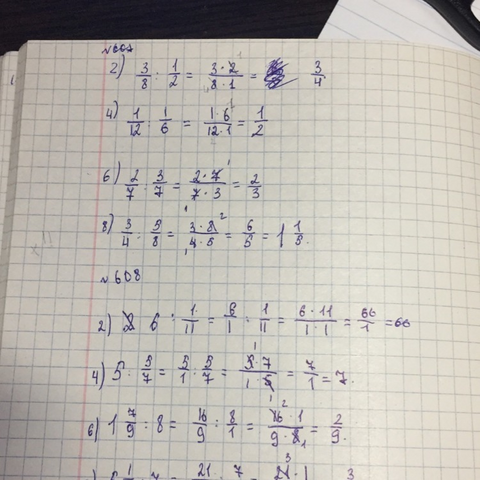 2) 3/8 : 1/2 = 3·2/8·1 = 3/4
4) 1/12 : 1/6 = 1·6/12·1 = 1/2
6) 2/7 : 3/7 = 2·7/7·3 = 2/3
8) 3/4 : 5/8 = 3·8/4·5 = 6/5 = 1 1/5.
№608
2) 6 : 1/11 = 6/1 : 1/11 = 6·11/1·1 = 66/1 = 66
4) 5 : 5/7 = 5/1 : 5/7 = 5·7/1·5 = 7/1 = 7.
6) 1 7/9 : 8 = 16/9 : 8/1 = 16·1/9·8 = 2/9.